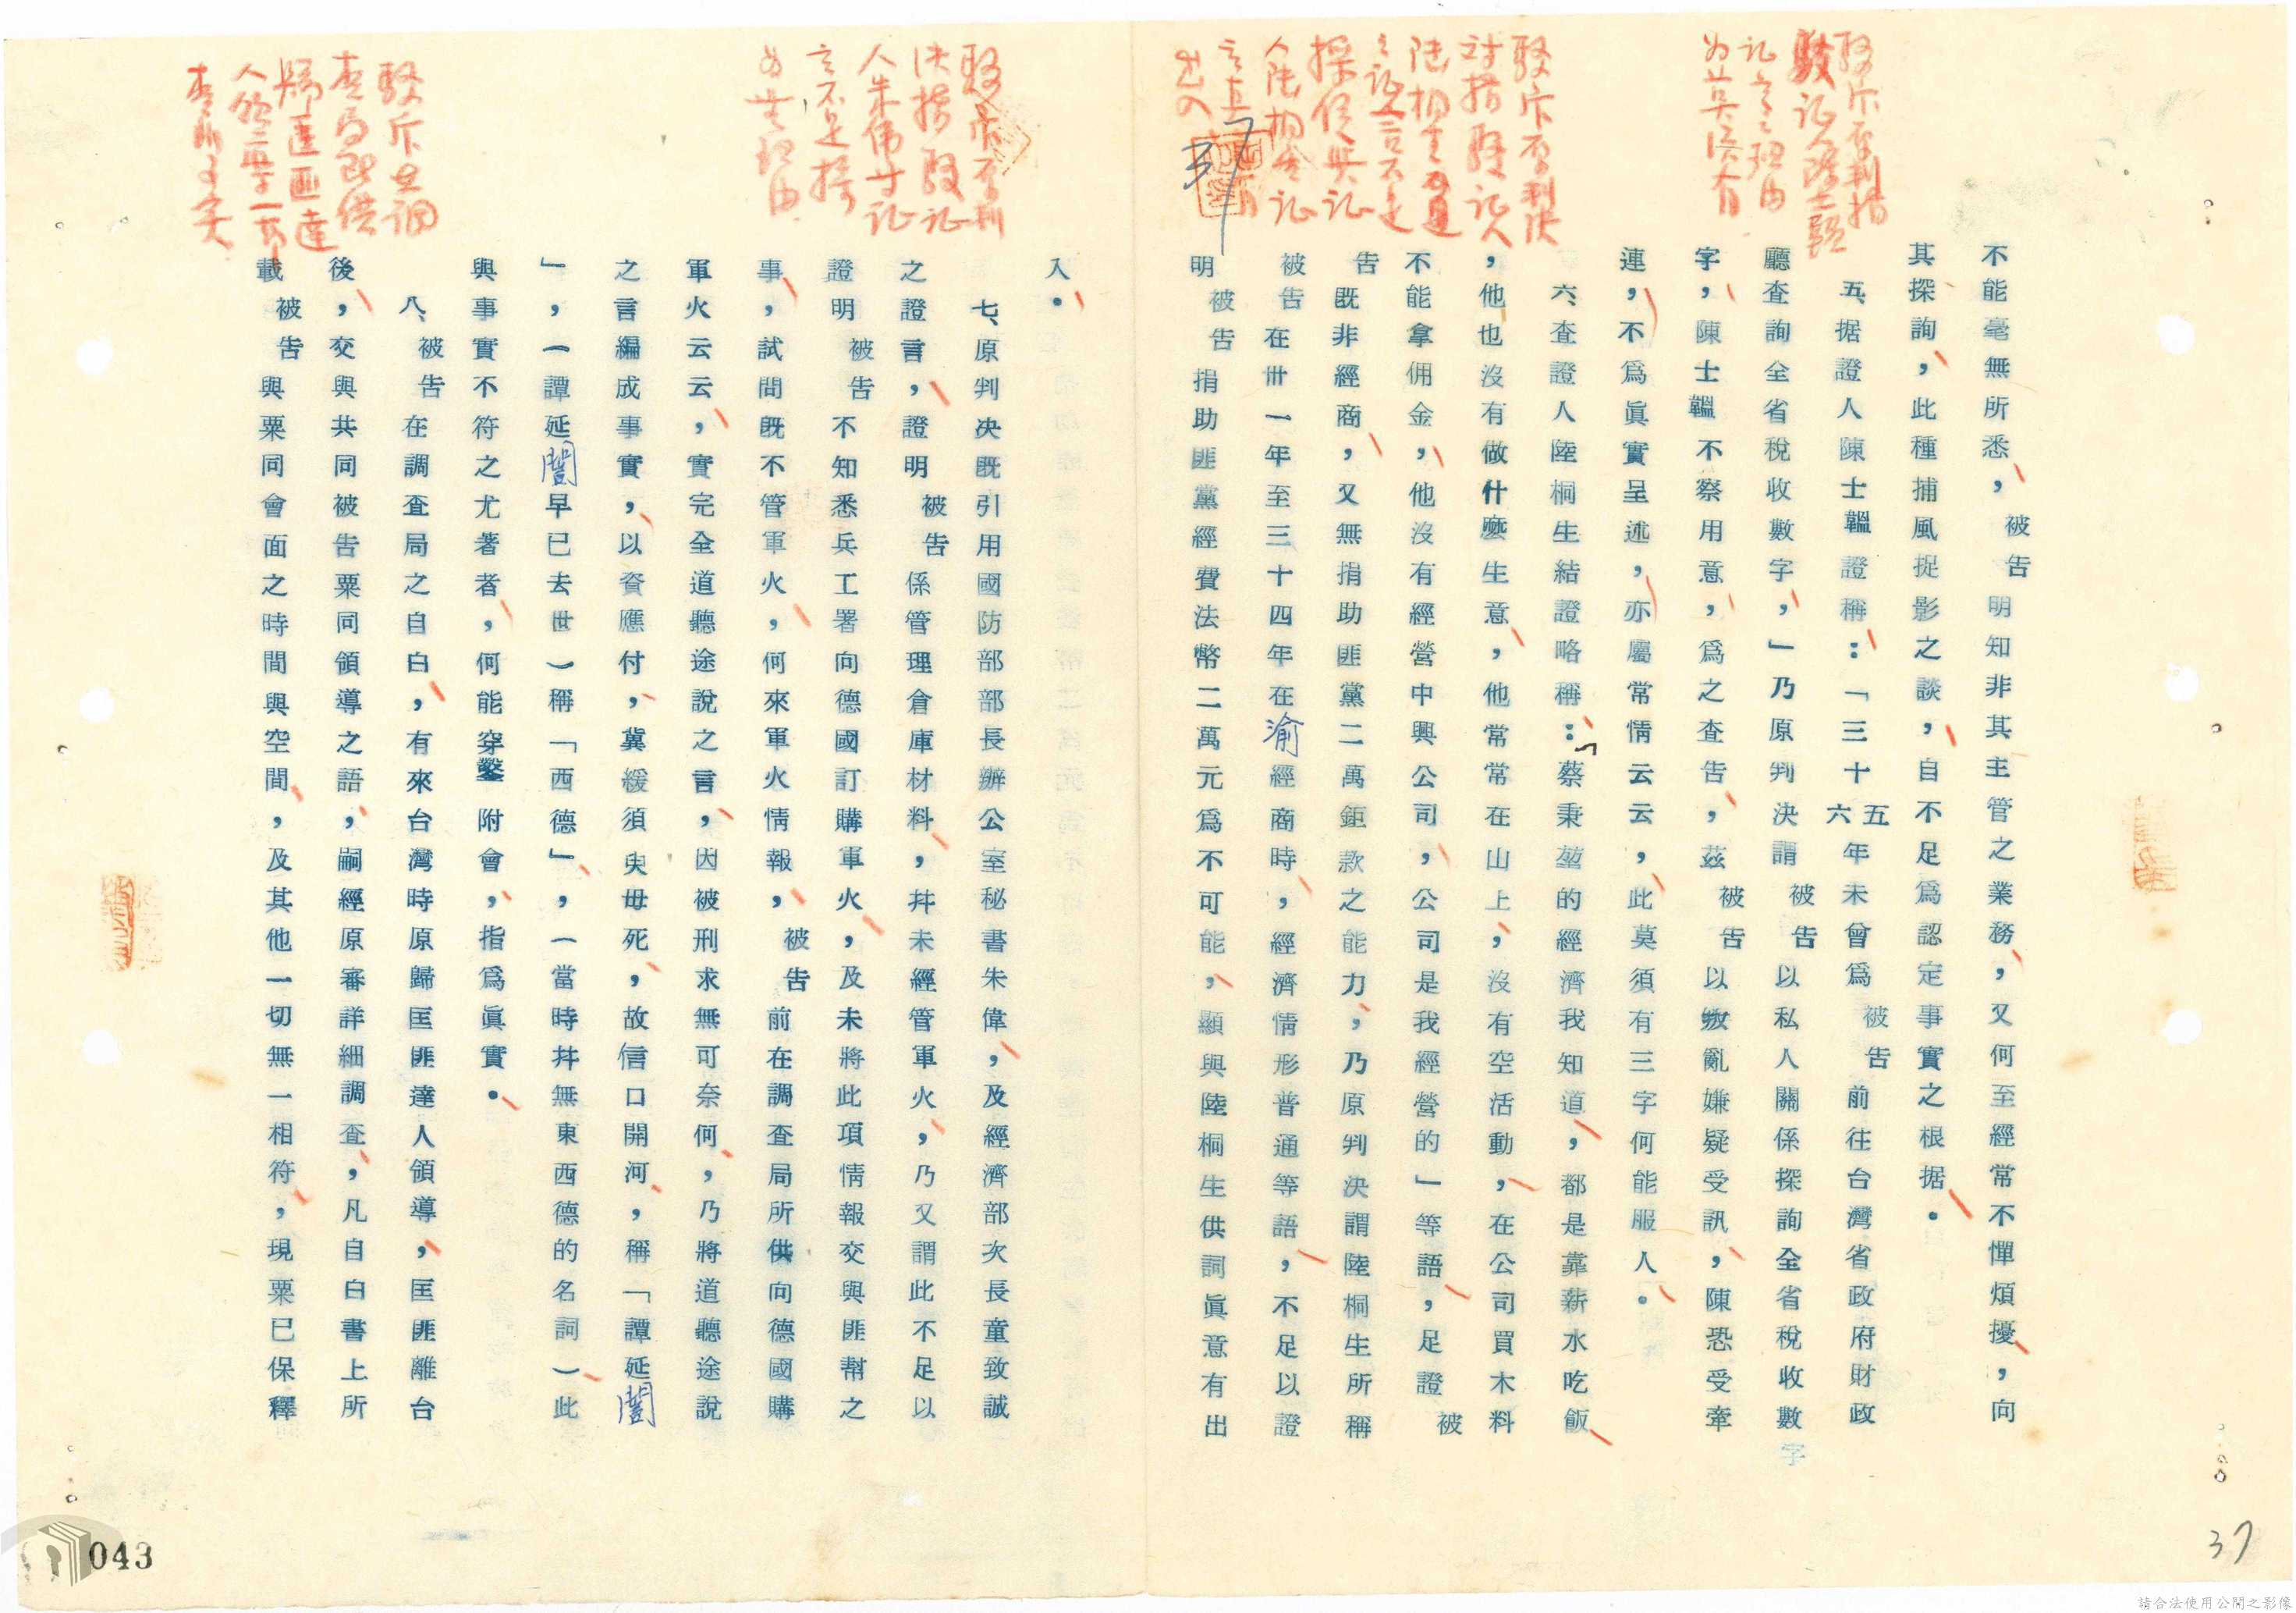 不能毫無所悉，被告明知非其主管之業務，又何至經常不憚煩擾，向
其探詢，此種捕風捉影之談，自不足爲認定事實之根据。
五、据證人陳士韞證稱：「三十五六年未曾爲被告前往台灣省政府財政
廳查詢全省稅收數字，」乃原判決謂被告以私人關係探詢全省稅收數字
字，陳士韞不察用意，爲之查告，茲被告以叛亂嫌疑受訊，陳恐受牽
連，不爲眞實呈述，亦屬常情云云，此莫須有三字何能服人。
六、查證人陸桐生結證略稱：「蔡秉堃的經濟我知道，都是靠薪水吃飯
，他也沒有做什麼生意，他常常在山上，沒有空活動，在公司買木料
不能拿佣金，他沒有經營中興公司，公司是我經營的」等語，足證被
告既非經商，又無捐助匪黨二萬鉅款之能力，乃原判決謂陸桐生所稱
被告在卅一年至三十四年在渝經商時，經濟情形普通等語，不足以證
明被告捐助匪黨經費法幣二萬元爲不可能，顯與陸桐生供詞眞意有出
入。
七、原判決既引用國防部部長辦公室秘書朱偉，及經濟部次長童致諴
之證言，證明被告係管理倉庫材料，幷未經管軍火，乃又謂此不足以
證明被告不知悉兵工署向德國訂購軍火，及未將此項情報交與匪幫之
事，試問既不管軍火，何來軍火情報，被告前在調查局所供向德國購
軍火云云，實完全道聽途說之言，因被刑求無可奈何，乃將道聽途說
之言編成事實，以資應付，冀緩須臾毋死，故信口開河，稱「譚延闓
」，一譚延闓早已去世）稱「西德」，一當時幷無東西德的名詞）此
與事實不符之尤著者，何能穿鑿附會，指爲眞實。
八、被告在調查局之自白，有來台灣時原歸匡匪達人領導，匡匪離台
後，交與共同被告粟同領導之語，嗣經原審詳細調查，凡自白書上所
載被告與粟同會面之時間與空間，及其他一切無一相符，現粟已保釋
37
043
請合法使用公開之影像